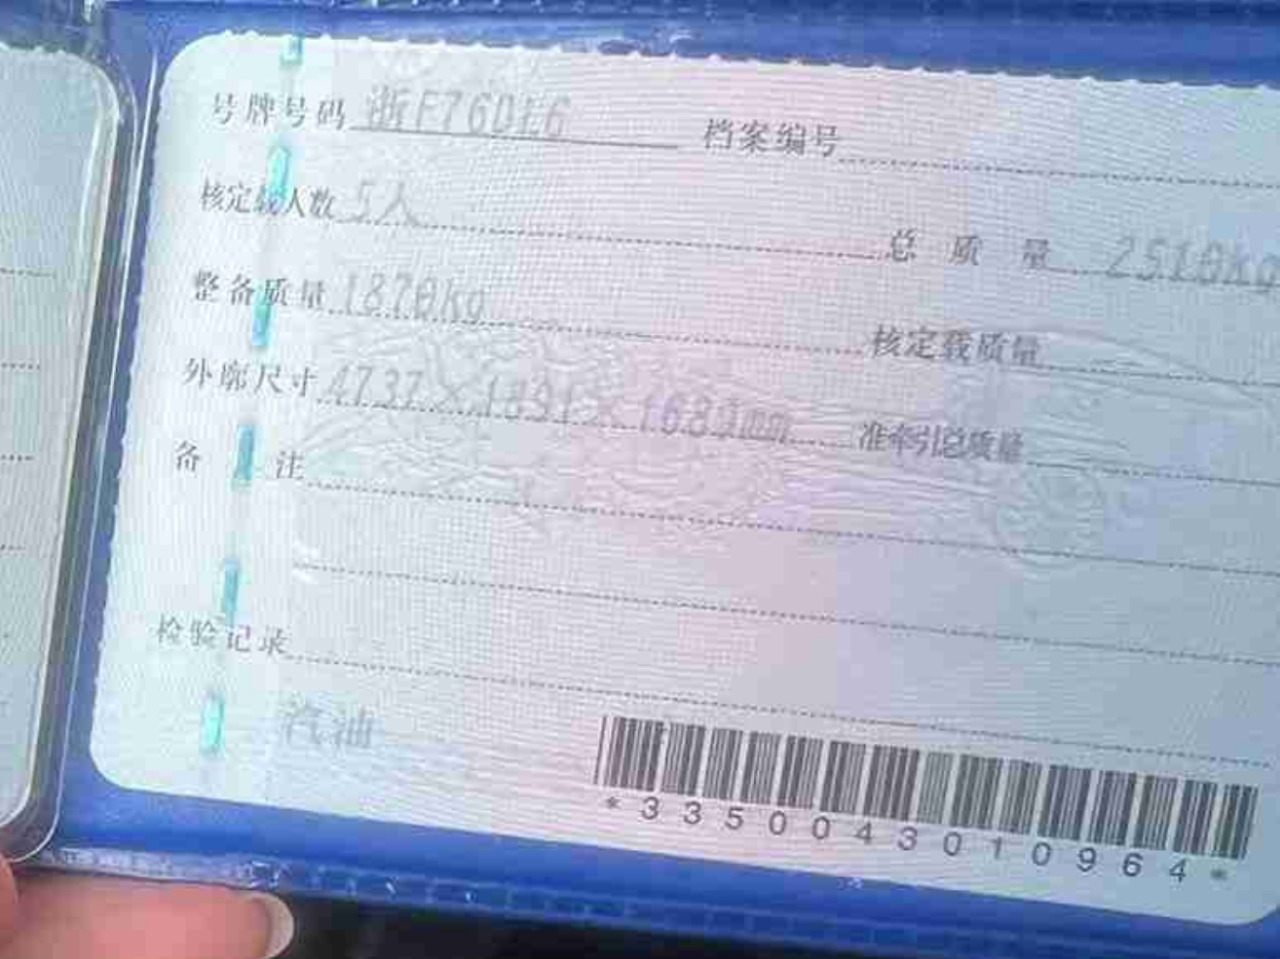 号牌号码 浙F76DE6 档案编号
核定载人数 5人 总质量 2510kg
整备质量 1870kg 核定载质量
外廓尺寸 4737×1891×1689mm 准牵引总质量
备注
检验记录
汽油
*3350043010964*